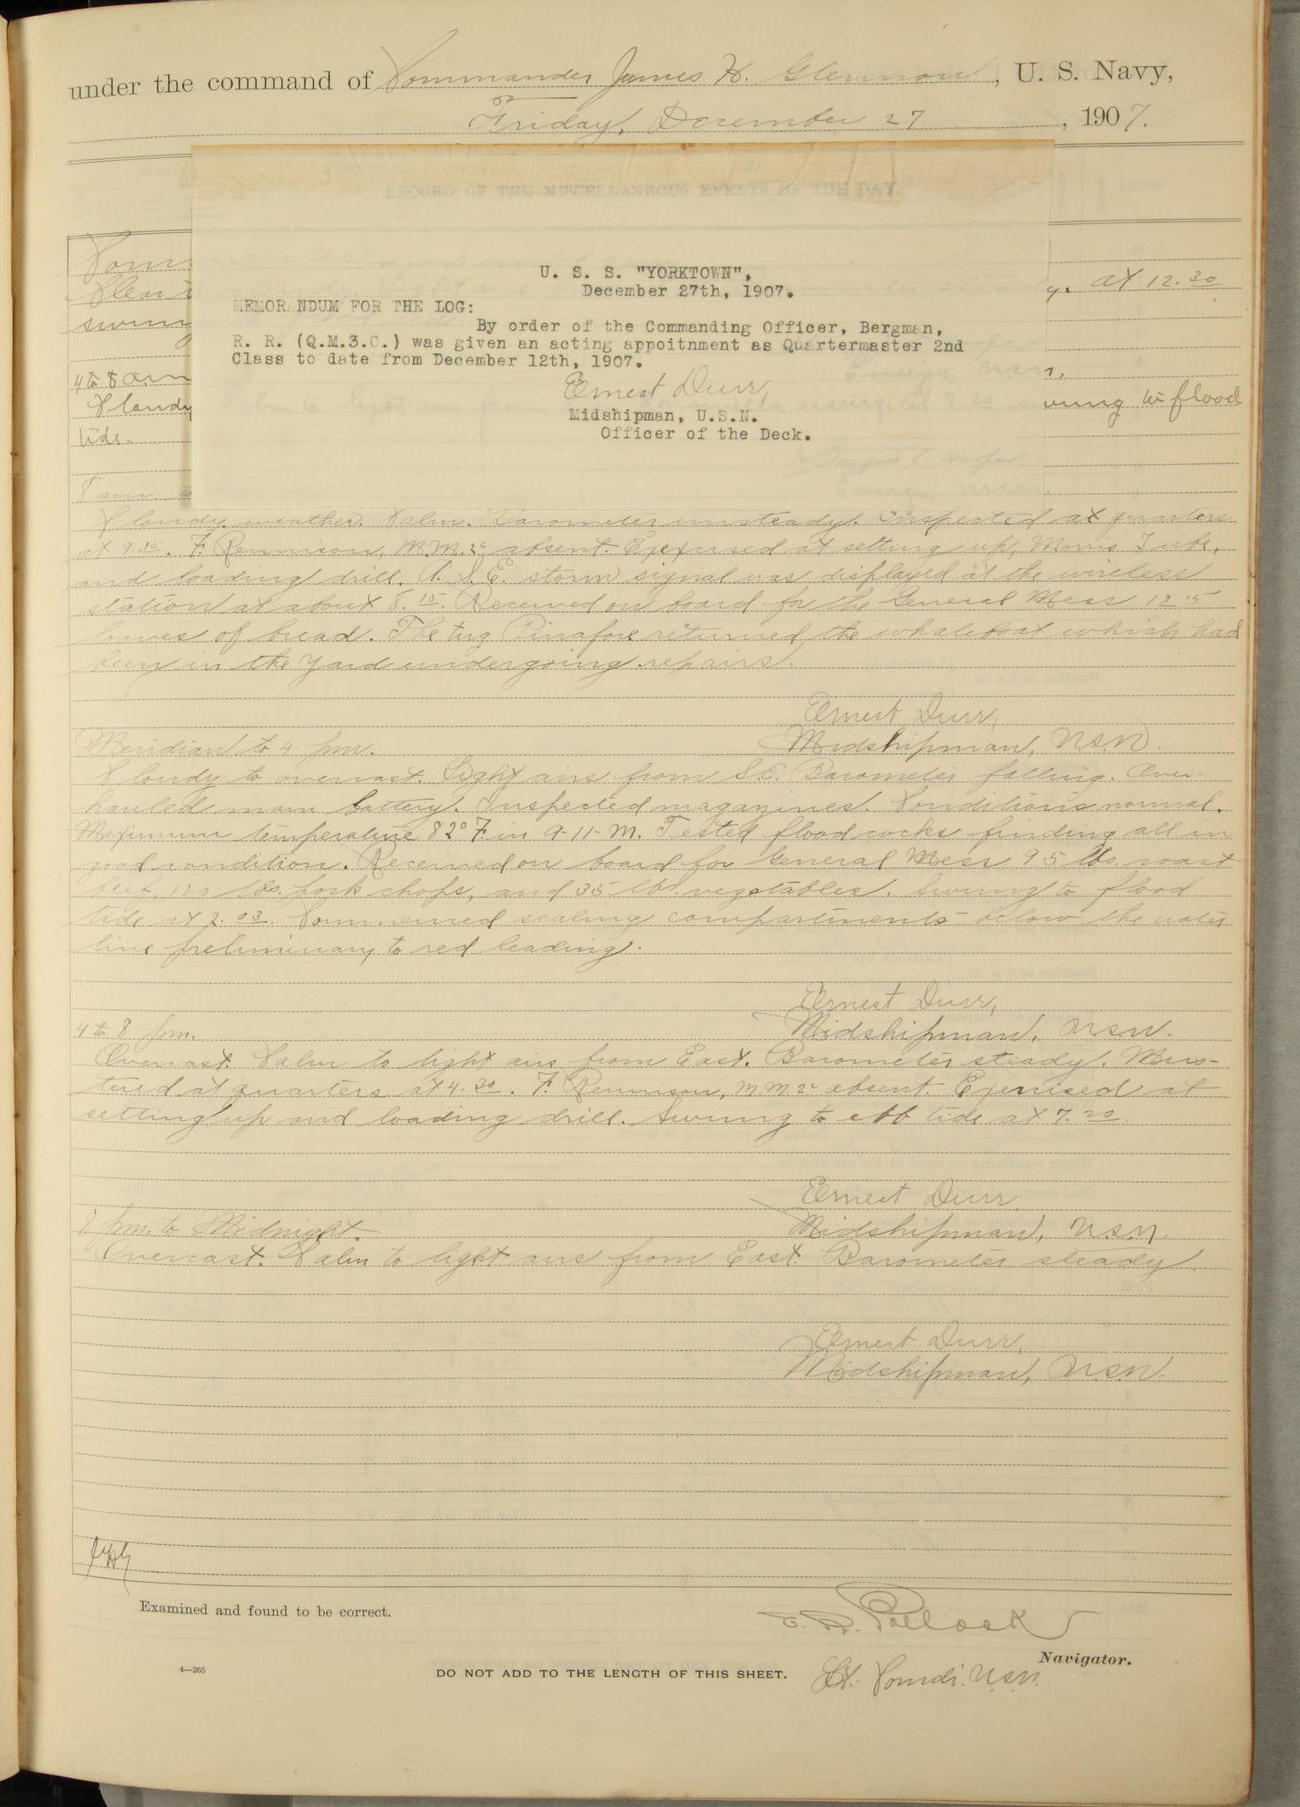 under the command of Commander James H. Glennon, U. S. Navy,
Friday, December 27, 1907.
RECORD OF THE MISCELLANEOUS EVENTS OF THE DAY.
U. S. S. "YORKTOWN",
December 27th, 1907.
MEMOR NDUM FOR THE LOG:
By order of the Commanding Officer, Bergman,
R. R. (Q.M.3.C.) was given an acting appoitnment as Quartermaster 2nd
Class to date from December 12th, 1907.
Ernest Durr,
Midshipman, U.S.N.
Officer of the Deck.
Com
at 12.30
swung
4 to 8 am
Cloudy
swung to flood
tide.
Cloudy weather. Calm. Barometer unsteady. Inspected at quarters
at 9.35. F. Rennison, M.M.2c absent. Exercised at setting up, Morris Tube,
and loading drill. A S.E. storm signal was displayed at the wireless
station at about 8.15. Received on board for the General Mess 125
loaves of bread. The tug Pinafore returned the whaleboat which had
been in the Yard undergoing repairs.
Ernest Durr,
Midshipman, USN.
Meridian to 4 pm.
Cloudy to overcast. Light airs from S.E. Barometer falling. Over-
hauled main battery. Inspected magazines. Conditions normal.
Maximum temperature 82° F in A-11-M. Tested flood cocks finding all in
good condition. Received on board for General Mess 95 lbs. roast
beef, lbs. pork chops, and 35 lbs. vegetables. Swung to flood
tide at 2.03. Commenced scaling compartments below the water
line preliminary to red leading.
Ernest Durr,
Midshipman, USN.
4 to 8 pm.
Overcast. Calm to light airs from East. Barometer steady. Mus-
tered at quarters at 4.30. F. Rennison, M M 2c absent. Exercised at
setting up and loading drill. Swung to ebb tide at 7.20
Ernest Durr
Midshipman, U.S.N.
8 pm. to Midnight.
Overcast. Calm to light airs from East. Barometer steady.
Ernest Durr,
Midshipman, U.S.N.
Examined and found to be correct.
Pollock
Navigator.
4—265
DO NOT ADD TO THE LENGTH OF THIS SHEET.
Lt. Comdr. U.S.N.